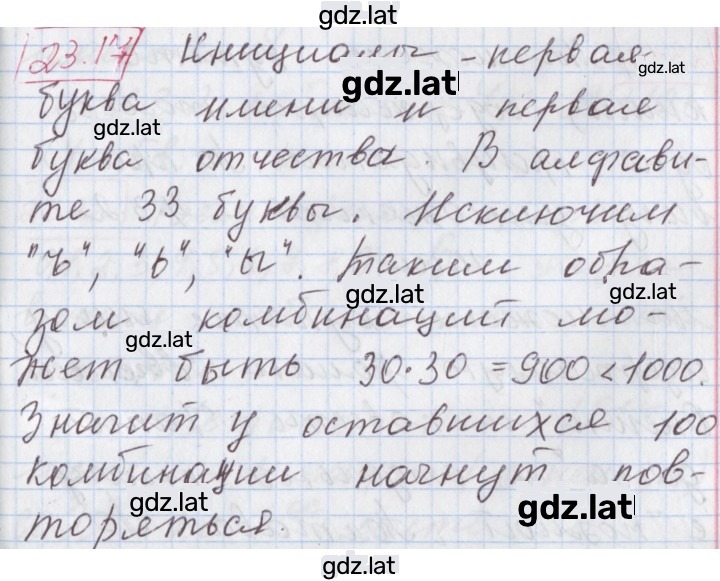 gdz.lat
23.17 Инициалы - первая
gdz.lat
gdz.lat
буква имени и первая
gdz.lat
буква отчества. В алфави-
те 33 буквы. Исключим
"ъ", "ь", "ы". Таким обра-
gdz.lat gdz.lat
зом комбинаций мо-
gdz.lat
жет быть 30·30 = 900 < 1000.
Значит у оставшихся 100
комбинации начнут пов-
gdz.lat gdz.lat
торяться.
gdz.lat